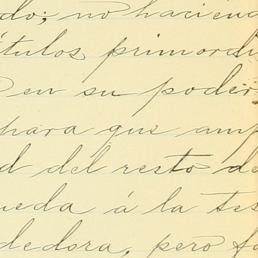 do; no hacien
ítulos primordi
en su poder,
para que amp
d del resto de
ueda á la tes
dedora, pero fa